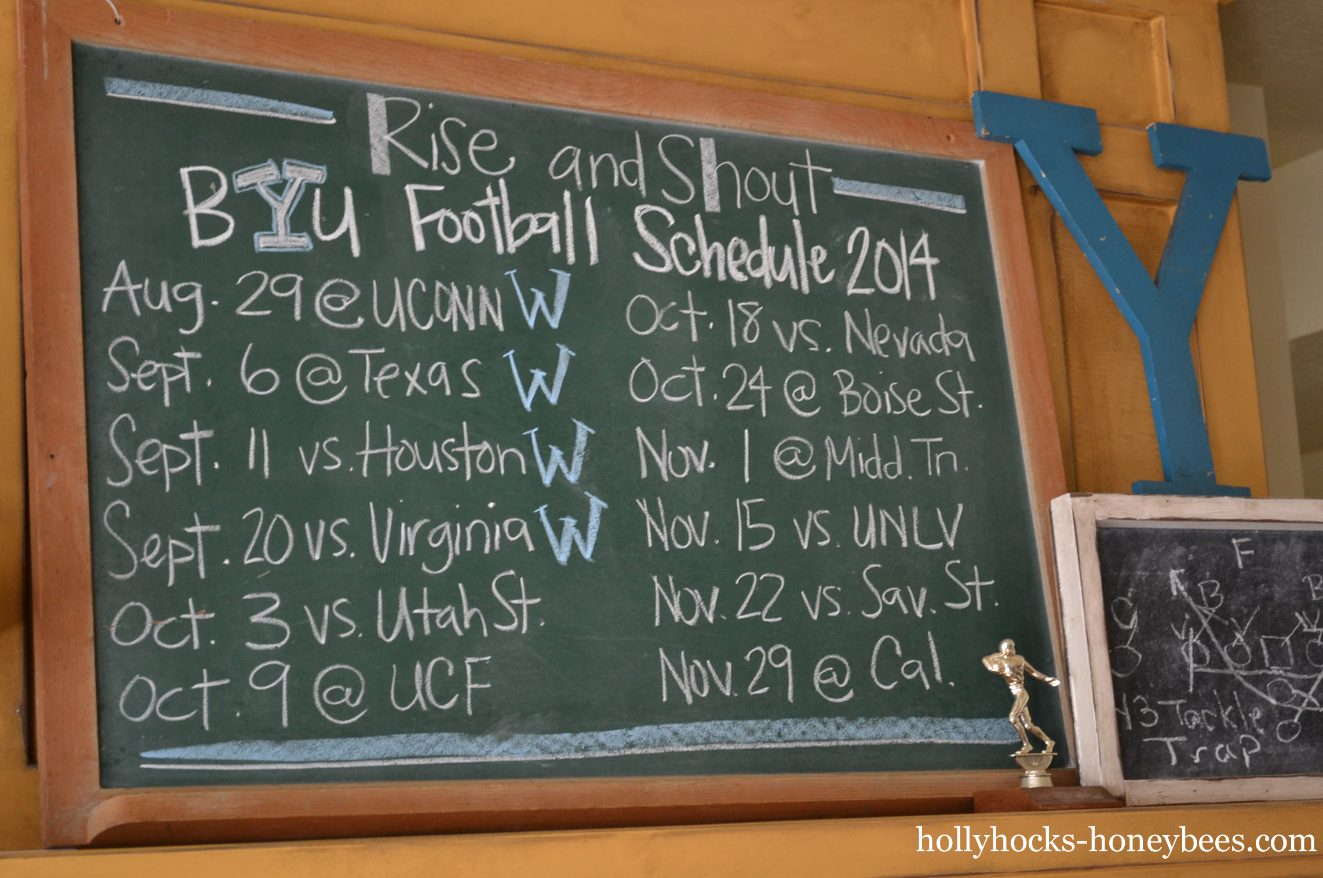 Rise and Shout
BYU Football Schedule 2014
Aug. 29 @ UCONN W
Sept. 6 @ Texas W
Sept. 11 vs. Houston W
Sept. 20 vs. Virginia W
Oct. 3 vs. Utah St.
Oct. 9 @ UCF
Oct. 18 vs. Nevada
Oct. 24 @ Boise St.
Nov. 1 @ Midd. Tn.
Nov. 15 vs. UNLV
Nov. 22 vs. Sav. St.
Nov. 29 @ Cal.
Y
F
B
43 Tackle
Trap
hollyhocks-honeybees.com